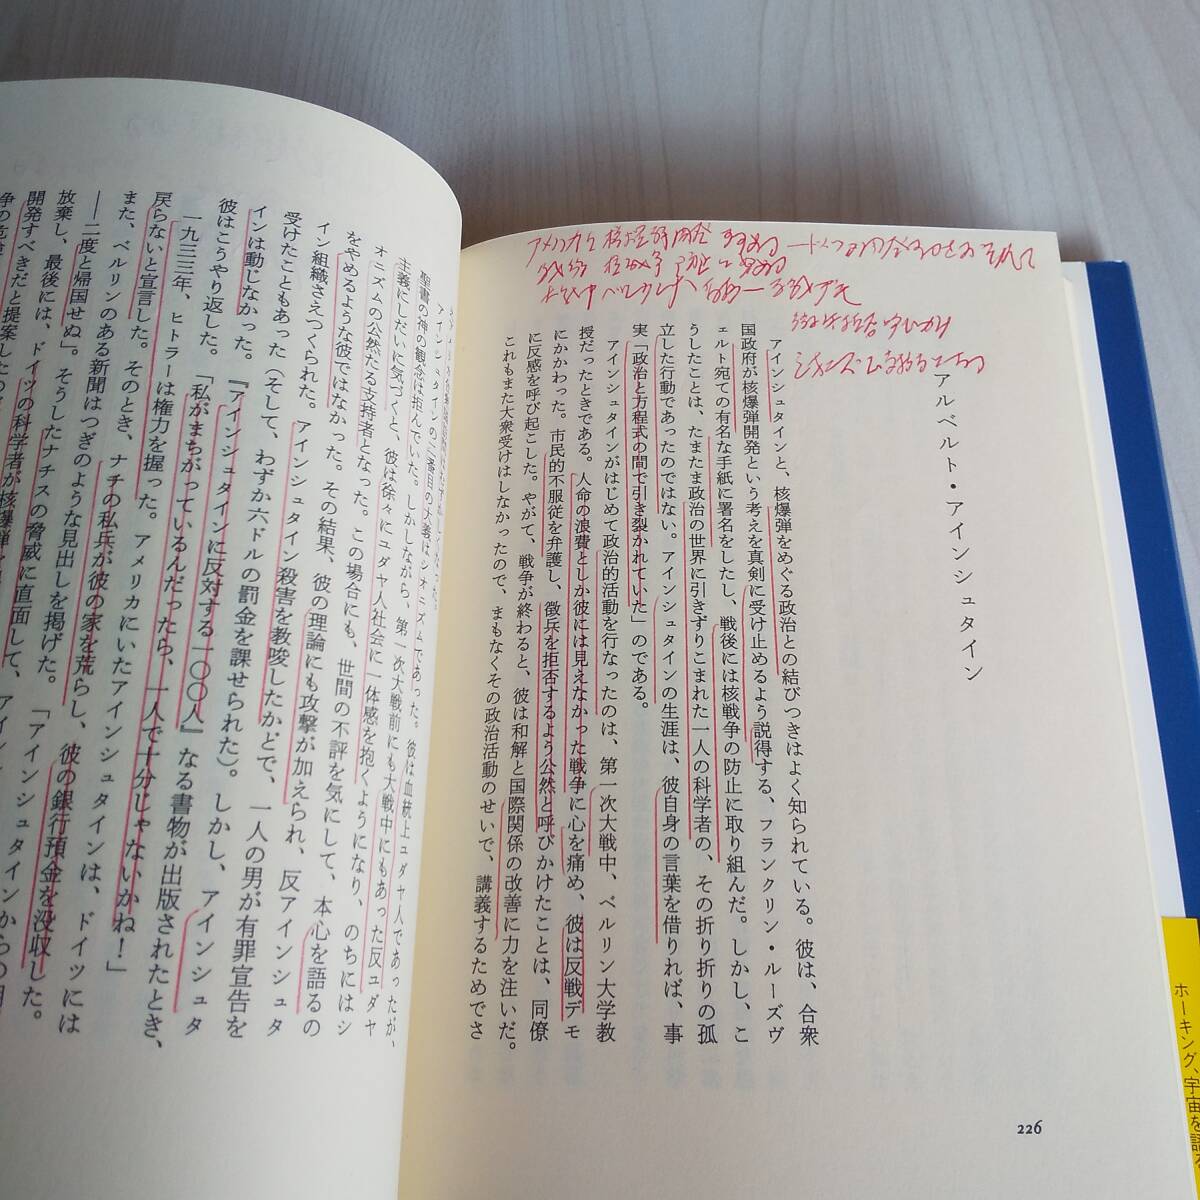 アルベルト・アインシュタイン
アインシュタインと、核爆弾をめぐる政治との結びつきはよく知られている。彼は、合衆
国政府が核爆弾開発という考えを真剣に受け止めるよう説得する、フランクリン・ルーズヴ
ェルト宛ての有名な手紙に署名をしたし、戦後には核戦争の防止に取り組んだ。しかし、こ
うしたことは、たまたま政治の世界に引きずりこまれた一人の科学者の、その折り折りの孤
立した行動であったのではない。アインシュタインの生涯は、彼自身の言葉を借りれば、事
実「政治と方程式の間で引き裂かれていた」のである。
アインシュタインがはじめて政治的活動を行なったのは、第一次大戦中、ベルリン大学教
授だったときである。人命の浪費としか彼には見えなかった戦争に心を痛め、彼は反戦デモ
にかかわった。市民的不服従を弁護し、徴兵を拒否するよう公然と呼びかけたことは、同僚
に反感を呼び起こした。やがて、戦争が終わると、彼は和解と国際関係の改善に力を注いだ。
これもまた大衆受けはしなかったので、まもなくその政治活動のせいで、講義するためでさ
226
アインシュタインの二番目の大義はシオニズムであった。彼は血統上ユダヤ人であったが、
聖書の神の観念は拒んでいた。しかしながら、第一次大戦前にも大戦中にもあった反ユダヤ
主義にしだいに気づくと、彼は徐々にユダヤ人社会に一体感を抱くようになり、のちにはシ
オニズムの公然たる支持者となった。この場合にも、世間の不評を気にして、本心を語るの
をやめるような彼ではなかった。その結果、彼の理論にも攻撃が加えられ、反アインシュタ
イン組織さえつくられた。アインシュタイン殺害を教唆したかどで、一人の男が有罪宣告を
受けたこともあった（そして、わずか六ドルの罰金を課せられた）。しかし、アインシュタ
インは動じなかった。『アインシュタインに反対する一〇〇人』なる書物が出版されたとき、
彼はこうやり返した。「私がまちがっているんだったら、一人で十分じゃないかね！」
一九三三年、ヒトラーは権力を握った。アメリカにいたアインシュタインは、ドイツには
戻らないと宣言した。そのとき、ナチの私兵が彼の家を荒らし、彼の銀行預金を没収した。
また、ベルリンのある新聞はつぎのような見出しを掲げた。「アインシュタインからの
――二度と帰国せぬ」。そうしたナチスの脅威に直面して、アイン
放棄し、最後には、ドイツの科学者が核爆弾
開発すべきだと提案したの
ホーキング、宇宙を語る